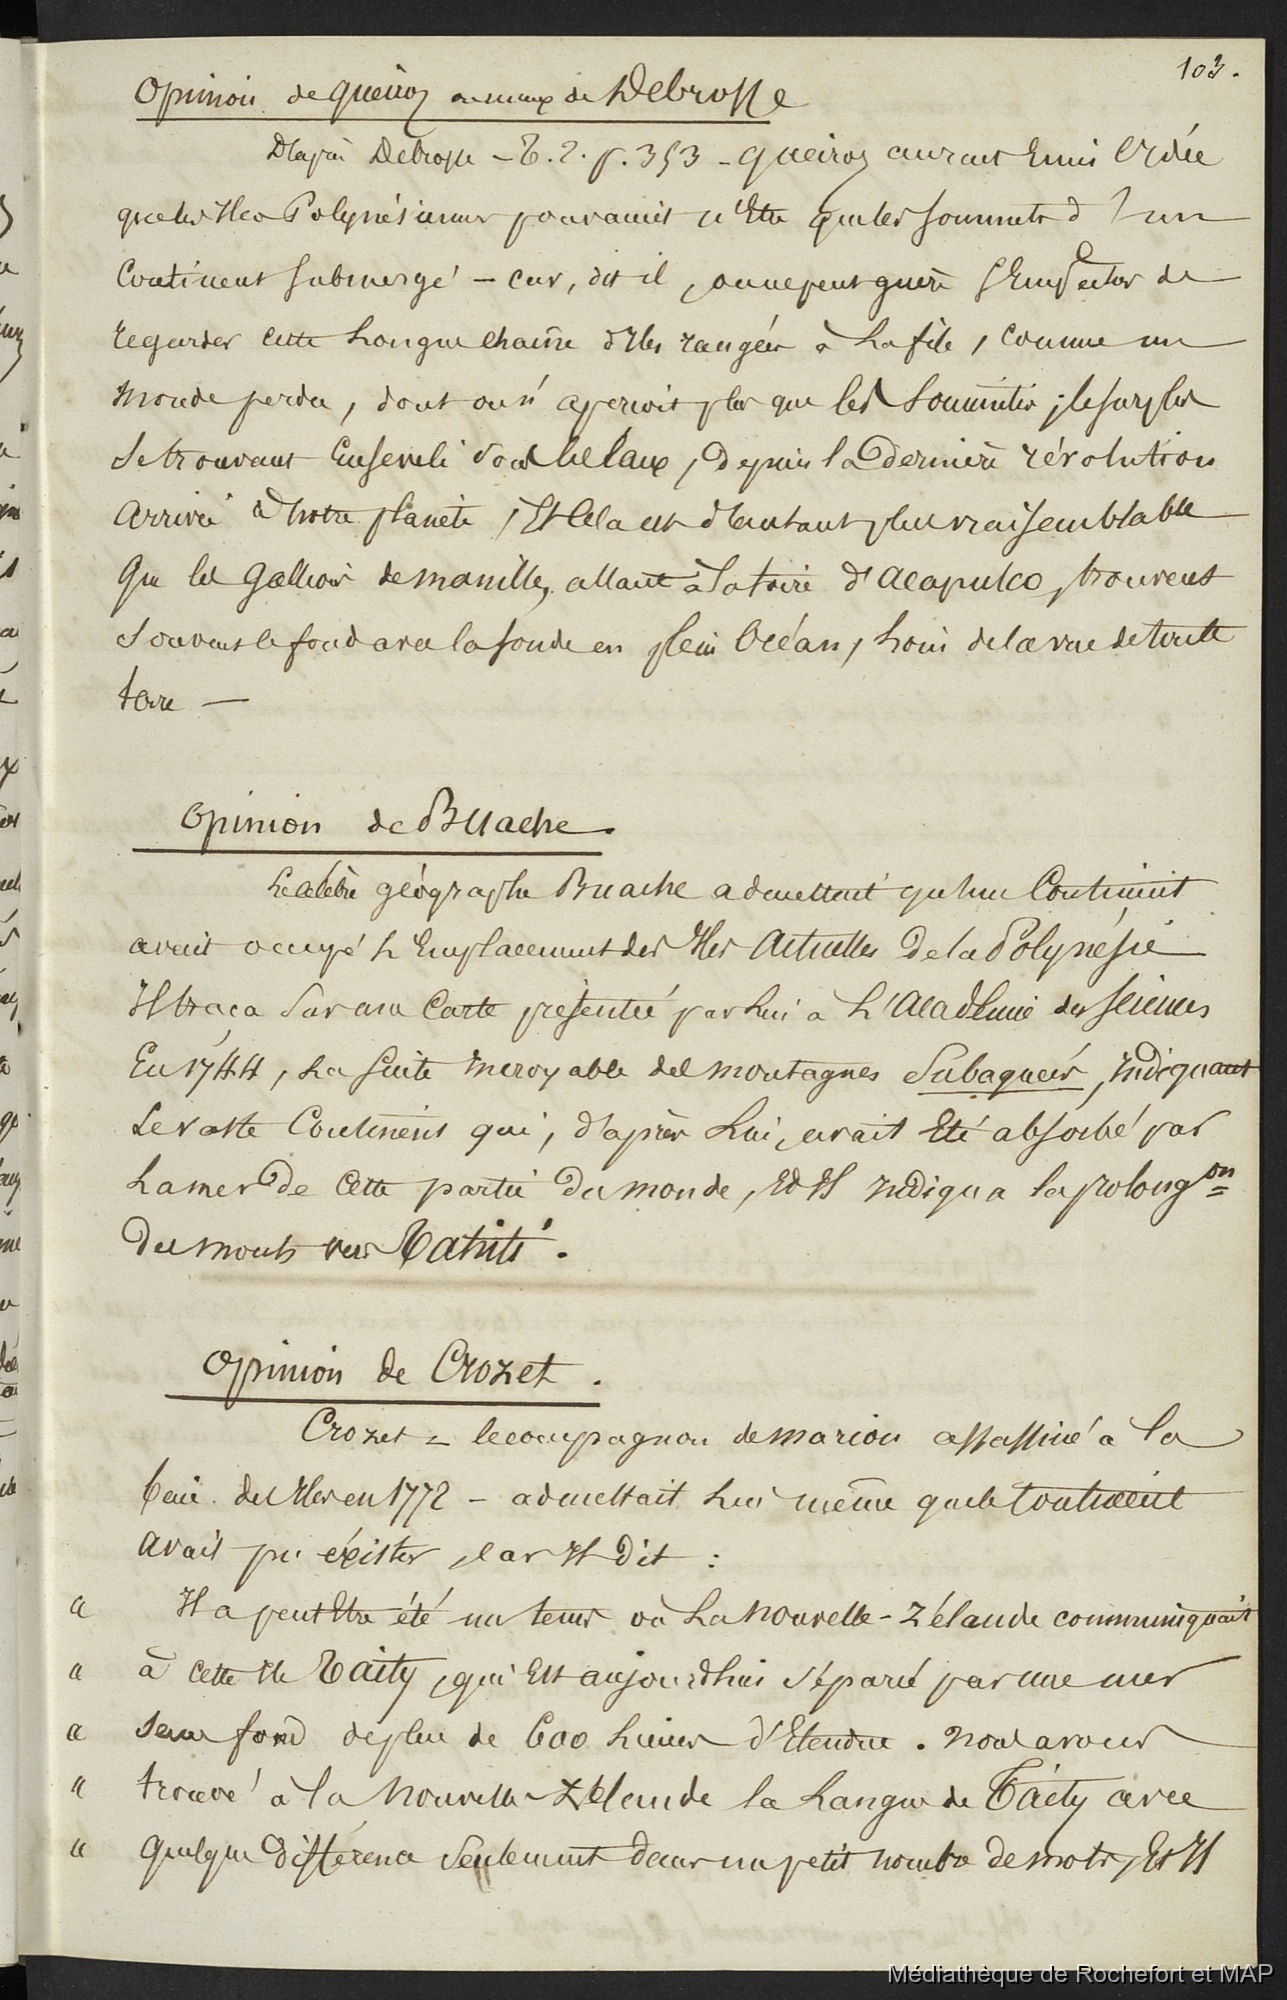 103.
Opinion de Queiroz ou mieux de Debrosse
D'après Debrosse – T. 2. p. 353 – Queiroz aurait Emis l'Idée
que les Iles Polynésiennes pourraient n'Etre que les sommets d'un
Continent submergé – car, dit il, on ne peut guère s'Empêcher de
regarder cette longue chaîne d'Iles rangées à la file, comme un
monde perdu, dont on n'aperçoit plus que les sommités ; le surplus
se trouvant Enseveli sous les Eaux, depuis la dernière révolution
arrivée à notre planète, Et Cela est d'autant plus vraisemblable
que les Gallions de manille, allant à la foire d'Acapulco, trouvent
souvent le fond avec la sonde en plein Océan, loin de la vue de toute
terre —
Opinion de Buache.
Le célèbre géographe Buache admettait qu'un Continent
avait occupé l'Emplacement des Iles Actuelles de la Polynésie
Il traça sur une Carte présentée par lui à l'Académie des Sciences
En 1744, la suite incroyable des montagnes Subaquées, Indiquant
le vaste Continent qui, d'après lui, avait Eté absorbé par
la mer de Cette partie du monde, Et Il Indiqua la prolong.on
des monts vers Tahiti.
Opinion de Crozet.
Crozet = le compagnon de Marion assassiné à la
baie des Iles en 1772 – admettait lui même que le Continent
avait pu éxister, car Il dit :
" Il a peut Etre été un tems où la Nouvelle-Zélande communiquait
" à cette Ile Taity, qui Est aujourd'hui séparée par une mer
" sans fond de plus de 600 lieues d'Etendue. Nous avons
" trouvé à la Nouvelle-Zélande la langue de Taïty avec
" quelque différence seulement dans un petit nombre de mots, Et Il
Médiathèque de Rochefort et MAP